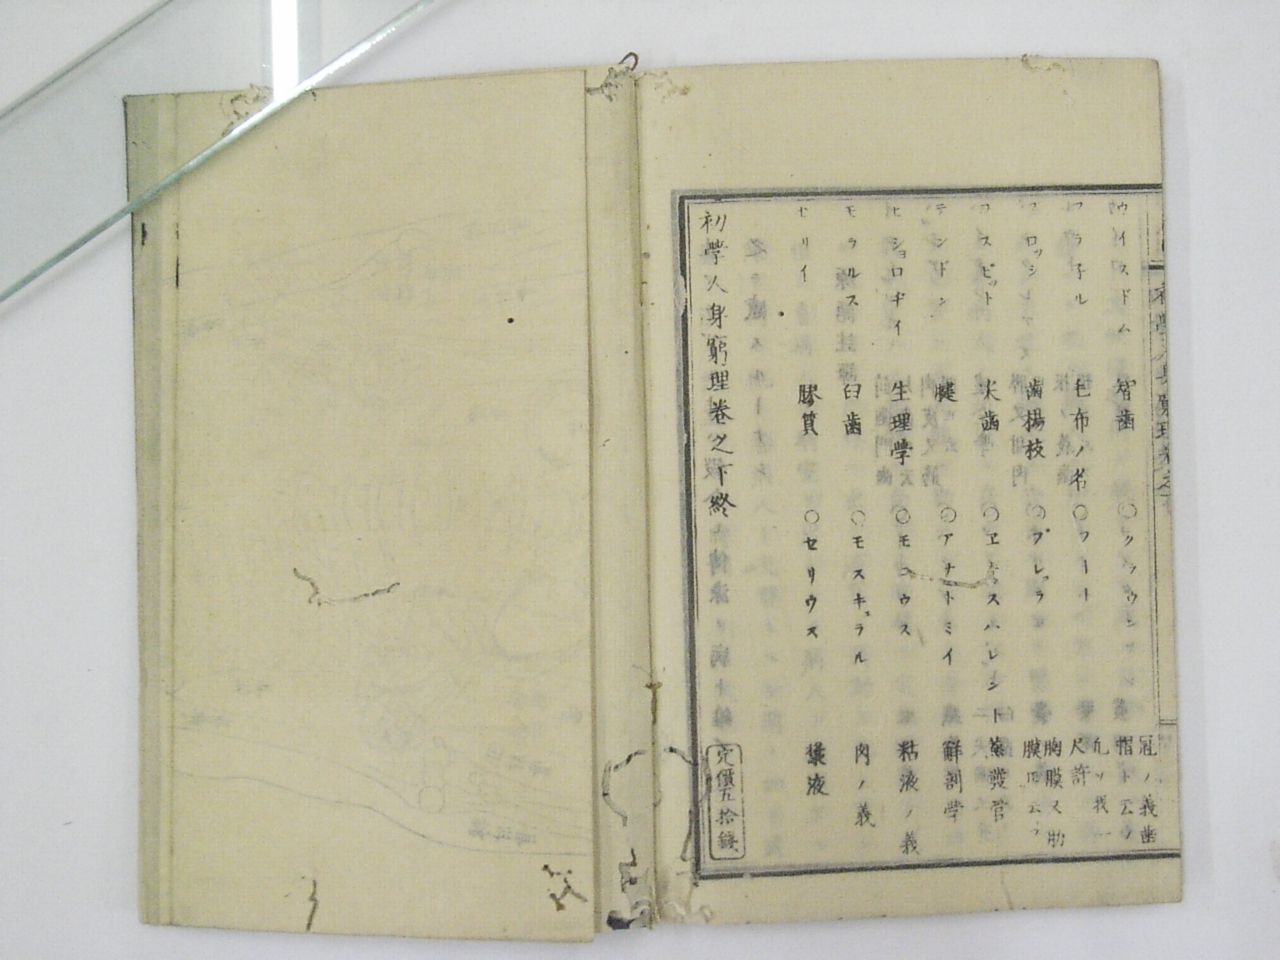 ウイスドム 智歯 ○クラウン 冠ノ義歯
帽ト云フ
フラ子ル 毛布ノ名 ○フート 九ソ我一
尺許
歯楊枝 ○プレラ 胸膜又肋
膜ト云フ
カスピット 尖歯 ○ヱキスハレント 蒸発管
テンドン 腱 ○アナトミイ 解剖学
ヒショロギイ 生理学 ○モコウス 粘液ノ義
モラルス 臼歯 ○モスキュラル 肉ノ義
セリイ 膠質 ○セリウス 漿液
初学人身窮理巻之下終
定價五拾錢
初学人身窮理巻之下